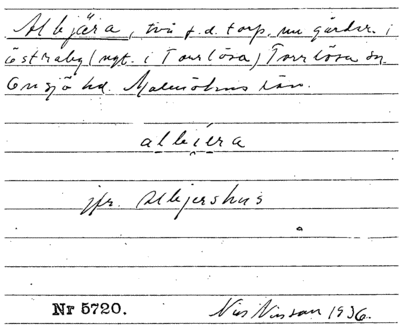 Albjära, två f.d. torp, nu gårdar i
Östraby (ngt. i Torrlösa) Torrlösa sn.
Onsjö hd. Malmöhus län.
albiera
jfr. Albjershus
Nr 5720. Nils Nilsson 1936.